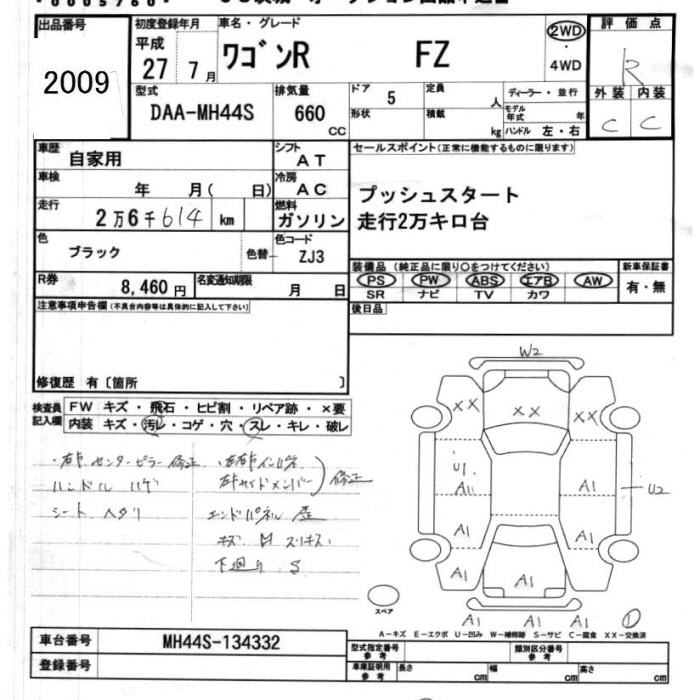 出品番号
2009
初度登録年月
平成
27 7 月
車名・グレード
ワゴンR FZ
2WD
・
4WD
評価点
R
外装 内装
C C
型式
DAA-MH44S
排気量
660
CC
ドア 5
形状
定員 人
積載 kg
ディーラー・並行
モデル年式 年
ハンドル 左・右
車歴
自家用
シフト
AT
車検
年 月( 日)
冷房
AC
走行
2万6千614 km
燃料
ガソリン
色
ブラック
色替
色コード
ZJ3
R券
8,460 円
名変通知期限
月 日
セールスポイント(正常に機能するものに限ります)
プッシュスタート
走行2万キロ台
装備品 (純正品に限り○をつけてください)
PS PW ABS エアB AW
SR ナビ TV カワ
新車保証書
有・無
後日品
注意事項申告欄(不具合内容等は具体的に記入して下さい)
修復歴 有〔箇所 〕
検査員
記入欄
FW キズ・飛石・ヒビ割・リペア跡・×要
内装 キズ・汚レ・コゲ・穴・スレ・キレ・破レ
・右センターピラー修正
ハンドル ハゲ
シート ヘタリ
・左右インパネ
右サイドメンバー
修正
エンドパネル 歪
キズ 凹 スリキズ
下廻り S
W2
XX XX XX
U1
A1 A1
U2
A1 A1
A1 A1 A1
A1 A1 A1
1
スペア
A-キズ E-エクボ U-凹み W-補修跡 S-サビ C-腐食 XX-交換済
車台番号
MH44S-134332
登録番号
型式指定番号
参考
類別区分番号
参考
車庫証明用
参考
長さ cm 幅 cm 高さ cm